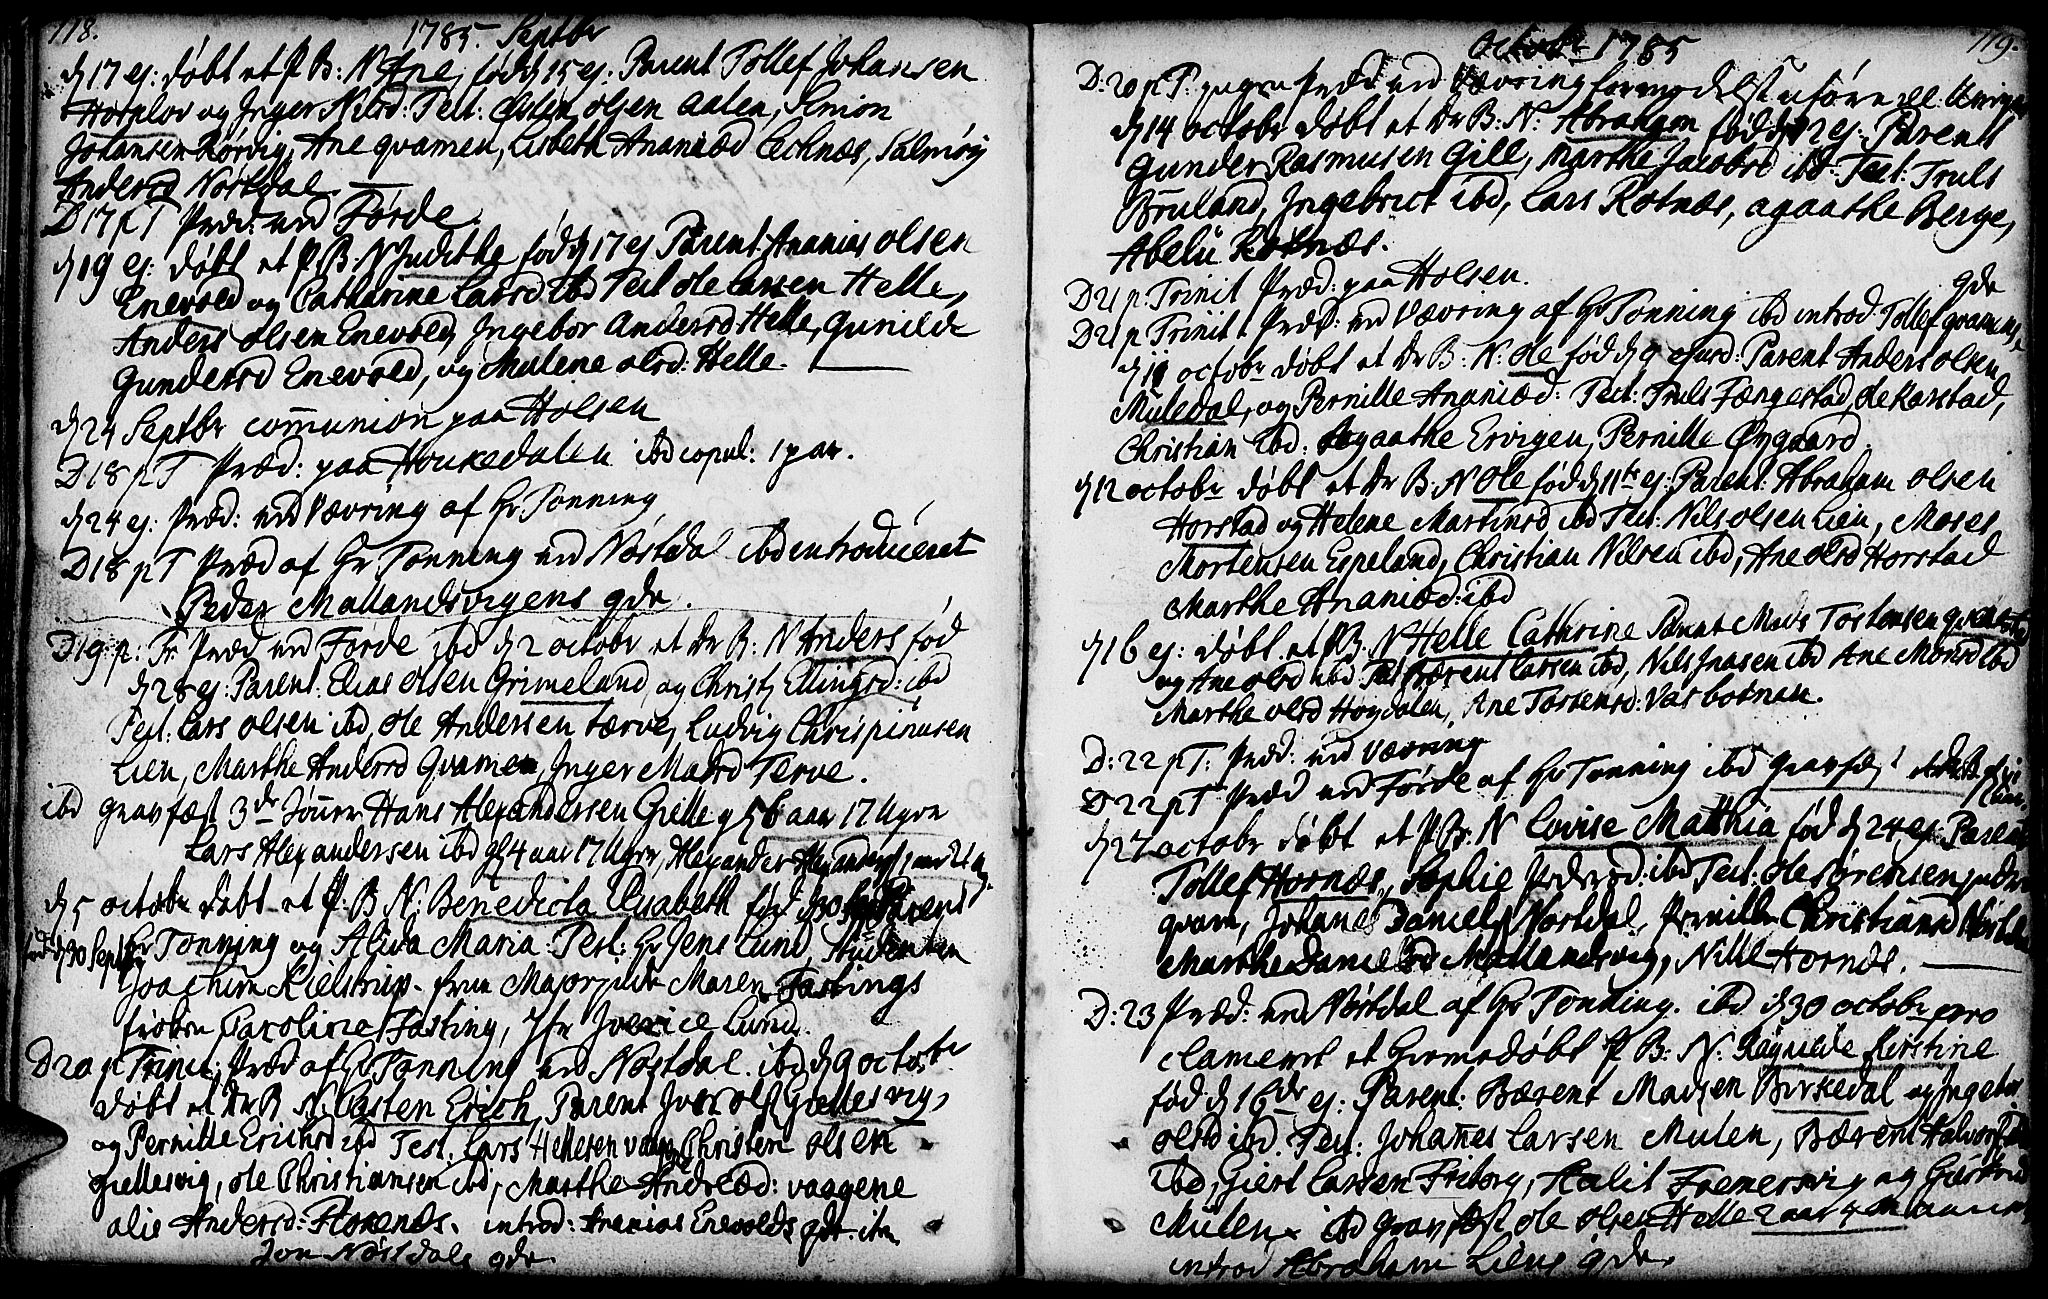 118.
1785. Septbr
d 17 ej: døbt et P B: N Ane, født d 15 ej: Parent Tollef Johansen
og Inger Test: olsen Aalen, Simon
Johansen Rørvig, Ane qvamen, Lisbeth Ananiæd Lechnæs, Salmøy
Andersd Nostdal
D 17 p T Præd: ved Førde
d 19 ej: døbt et P. B: N Judithe fød d 17 ej Parent: Ananias olsen
Enevold og Catharine Larsd ibd Test ole Larsen Helle,
Anders olsen Enevold, Ingebor Andersd Helle, Gunilde
Gundersd Enevold, og Malene olsd: Helle.
d 24 Septbr communion paa Holsen
D 18 p T Præd: paa Houkedalen ibd copul: 1 par.
d 24 ej: Præd: ved Vævring af Hr Tonning
D 18 p T Præd af Hr Tonning ved Nostdal ibd introduceret
Peder Mallandsvigens qde.
D 19 p: Tr Præd ved Førde ibd d 2 octobr et Dr B: N Anders fød
d 28 ej: Parent: Elias olsen Grimeland, og Christj Ellingsd: ibd
Test: Lars olsen ibd, ole Andersen tærve, Ludvig Chrispinusen
Lien, Marthe Andersd Qvamen, Inger Madsd Terve.
ibd gravfæst 3de Hans Alexandersen Gielle 56 aar 17 Ugrn
Lars Alexandersen ibd 4 aar 17 Ugrn, Alexander
d 5 octobr døbt et P. B N: Benedicta Elisabeth fød Parent
fød d 30 Septbr Hr Tonning og Alida Maria: Test: Hr Jens Lund, Studenten
Joachim Kielstrup. frue Majorinde Maren Fastings
frøken Caroline Fasting, Jfr Lund.
D 20 p Trinit: Præd af Hr Tonning ved Nostdal. ibd d 9 octobr
døbt et Dr B N: Casten Erich, Parent Iver ols Giellesvig,
og Pernille Erichsd ibd Test. Lars Hellesen vaage, Christen olsen
Giellesvig, ole Christiansen ibd, Marthe Andreæd: vaagene
alie Andersd: Florenæs. introd: Ananias Enevolds qde. itm
Jon Nøstdals qde
octobr 1785 119.
D: 20 p T: ingen Præd ved Vævring formedelst
d 14 octobr døbt et Dr B: N: Abraham fød d 12 ej: Parent
Gunder Rasmusen Gill, Marthe Jacobsd ibd. Test: Truls
Bruland, Ingebrict ibd, Lars Rotnæs, agaathe Berge,
Abelu Rotnæs.
D 21 p. Trinit Præd: paa Holsen.
D 21 p Trinit Præd: ved Vævring af Hr Tonning ibd introd: Tollef qvamens qde
d 11 octobr døbt et Dr B: N: ole fød d 9 ejusd: Parent Anders olsen
Muledal, og Pernille Ananiæd: Test: Truls Fængestad, ole Karstad,
Christian ibd: agaathe Ervigen, Pernille Øygaard.
d 12 octobr døbt et Dr B: N Ole fød d 11te ej: Parent: Abraham olsen
Horstad og Helene Martinsd ibd Test: Nils olsen Lien, Moses
Mortensen Espeland, Christian Nilsen ibd, Ane olsd Horstad
Marthe Ananiæd: ibd
d 16 ej: døbt et P B: N Helle Cathrine Parent Mads Tostensen
og Ane olsd ibd Test Bærent Larsen ibd, Nils Jnasen ibd Ane Monsd ibd
Marthe olsd Høydalen, Ane Tostensd: Vasbotnen.
D: 22 p T: Præd: ved Vævring
D 22 p T Præd ved Førde af Hr Tonning ibd gravfæst
d 27 octobr døbt et P Br: N Lovise Matthia fød d 24 ej: Parent
Tollef Hornæs, Sophie Pedersd: ibd Test: ole Sørensen indre
qvam, Johanes Daniels Nostdal, Pernille Christiansd Nøstdal
Marthe Danielsd Mallandsvig, Nille Hornæs.
D: 23 Præd: ved Nøstdal af Hr Tonning. ibd d 30 octobr pro
clameret et hiemedøbt P B: N: Ragnilde Kirstine
fød d 16de ej: Parent: Bærent Madsen Birkedal og Ingebor
olsd ibd. Test: Johannes Larsen Mulen, Bærent Halvors
ibd, Giert Larsen Friborg, Kalit Fremersvig og Giertrud
Mulen. ibd gravfæst ole olsen Helle 2 aar
introd Abraham Liens qde